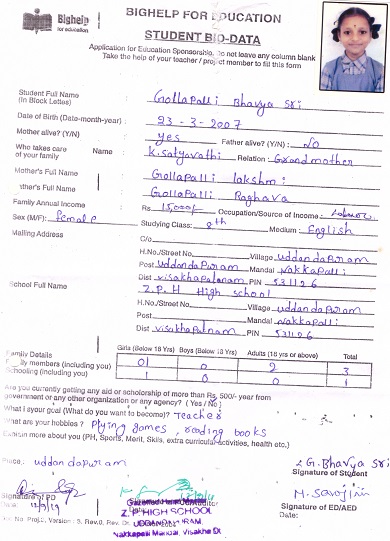 Bighelp
for education
BIGHELP FOR EDUCATION
STUDENT BIO-DATA
Application for Education Sponsorship, Do not leave any column blank
Take the help of your teacher / project member to fill this form
Student Full Name
(In Block Letters)
Gollapalli Bhavya Sri
Date of Birth (Date-month-year) : 23 - 3 - 2007
Mother alive? (Y/N) : Yes Father alive? (Y/N) : No
Who takes care of your family Name : K. Satyavathi Relation : Grandmother
Mother's Full Name Gollapalli lakshmi
Father's Full Name Gollapalli Raghava
Family Annual Income Rs. 15,000/- Occupation/Source of Income :
Sex (M/F): female Studying Class: 8th Medium : English
Mailing Address C/o
H.No./Street No. Village uddandapuram
Post uddandapuram Mandal Nakkapalli
Dist visakhapatnam PIN 531126
School Full Name Z.P.H High school
H.No./Street No. Village uddandapuram
Post Mandal Nakkapalli
Dist visakhapatnam PIN 531126
Family Details Girls (Below 18 Yrs) Boys (Below 18 Yrs) Adults (18 yrs or above) Total
Family members (including you) 01 0 2 3
Schooling (including you) 1 0 0 1
Are you currently getting any aid or scholarship of more than Rs. 500/- year from
government or any other organization or any agency? ( Yes / No )
What is your goal (What do you want to become)? Teacher
What are your hobbies? Plying games, reading books
Explain more about you (PH, Sports, Merit, Skills, extra curricular activities, health etc.)
Place: uddandapuram
G. Bhavya Sri
Signature of Student
Signature of PD
M. Sarojini
Signature of ED/AED
Date:
Z.P HIGH SCHOOL
UDDANDAPURAM,
Nakkapalli Mandal, Visakha Dt